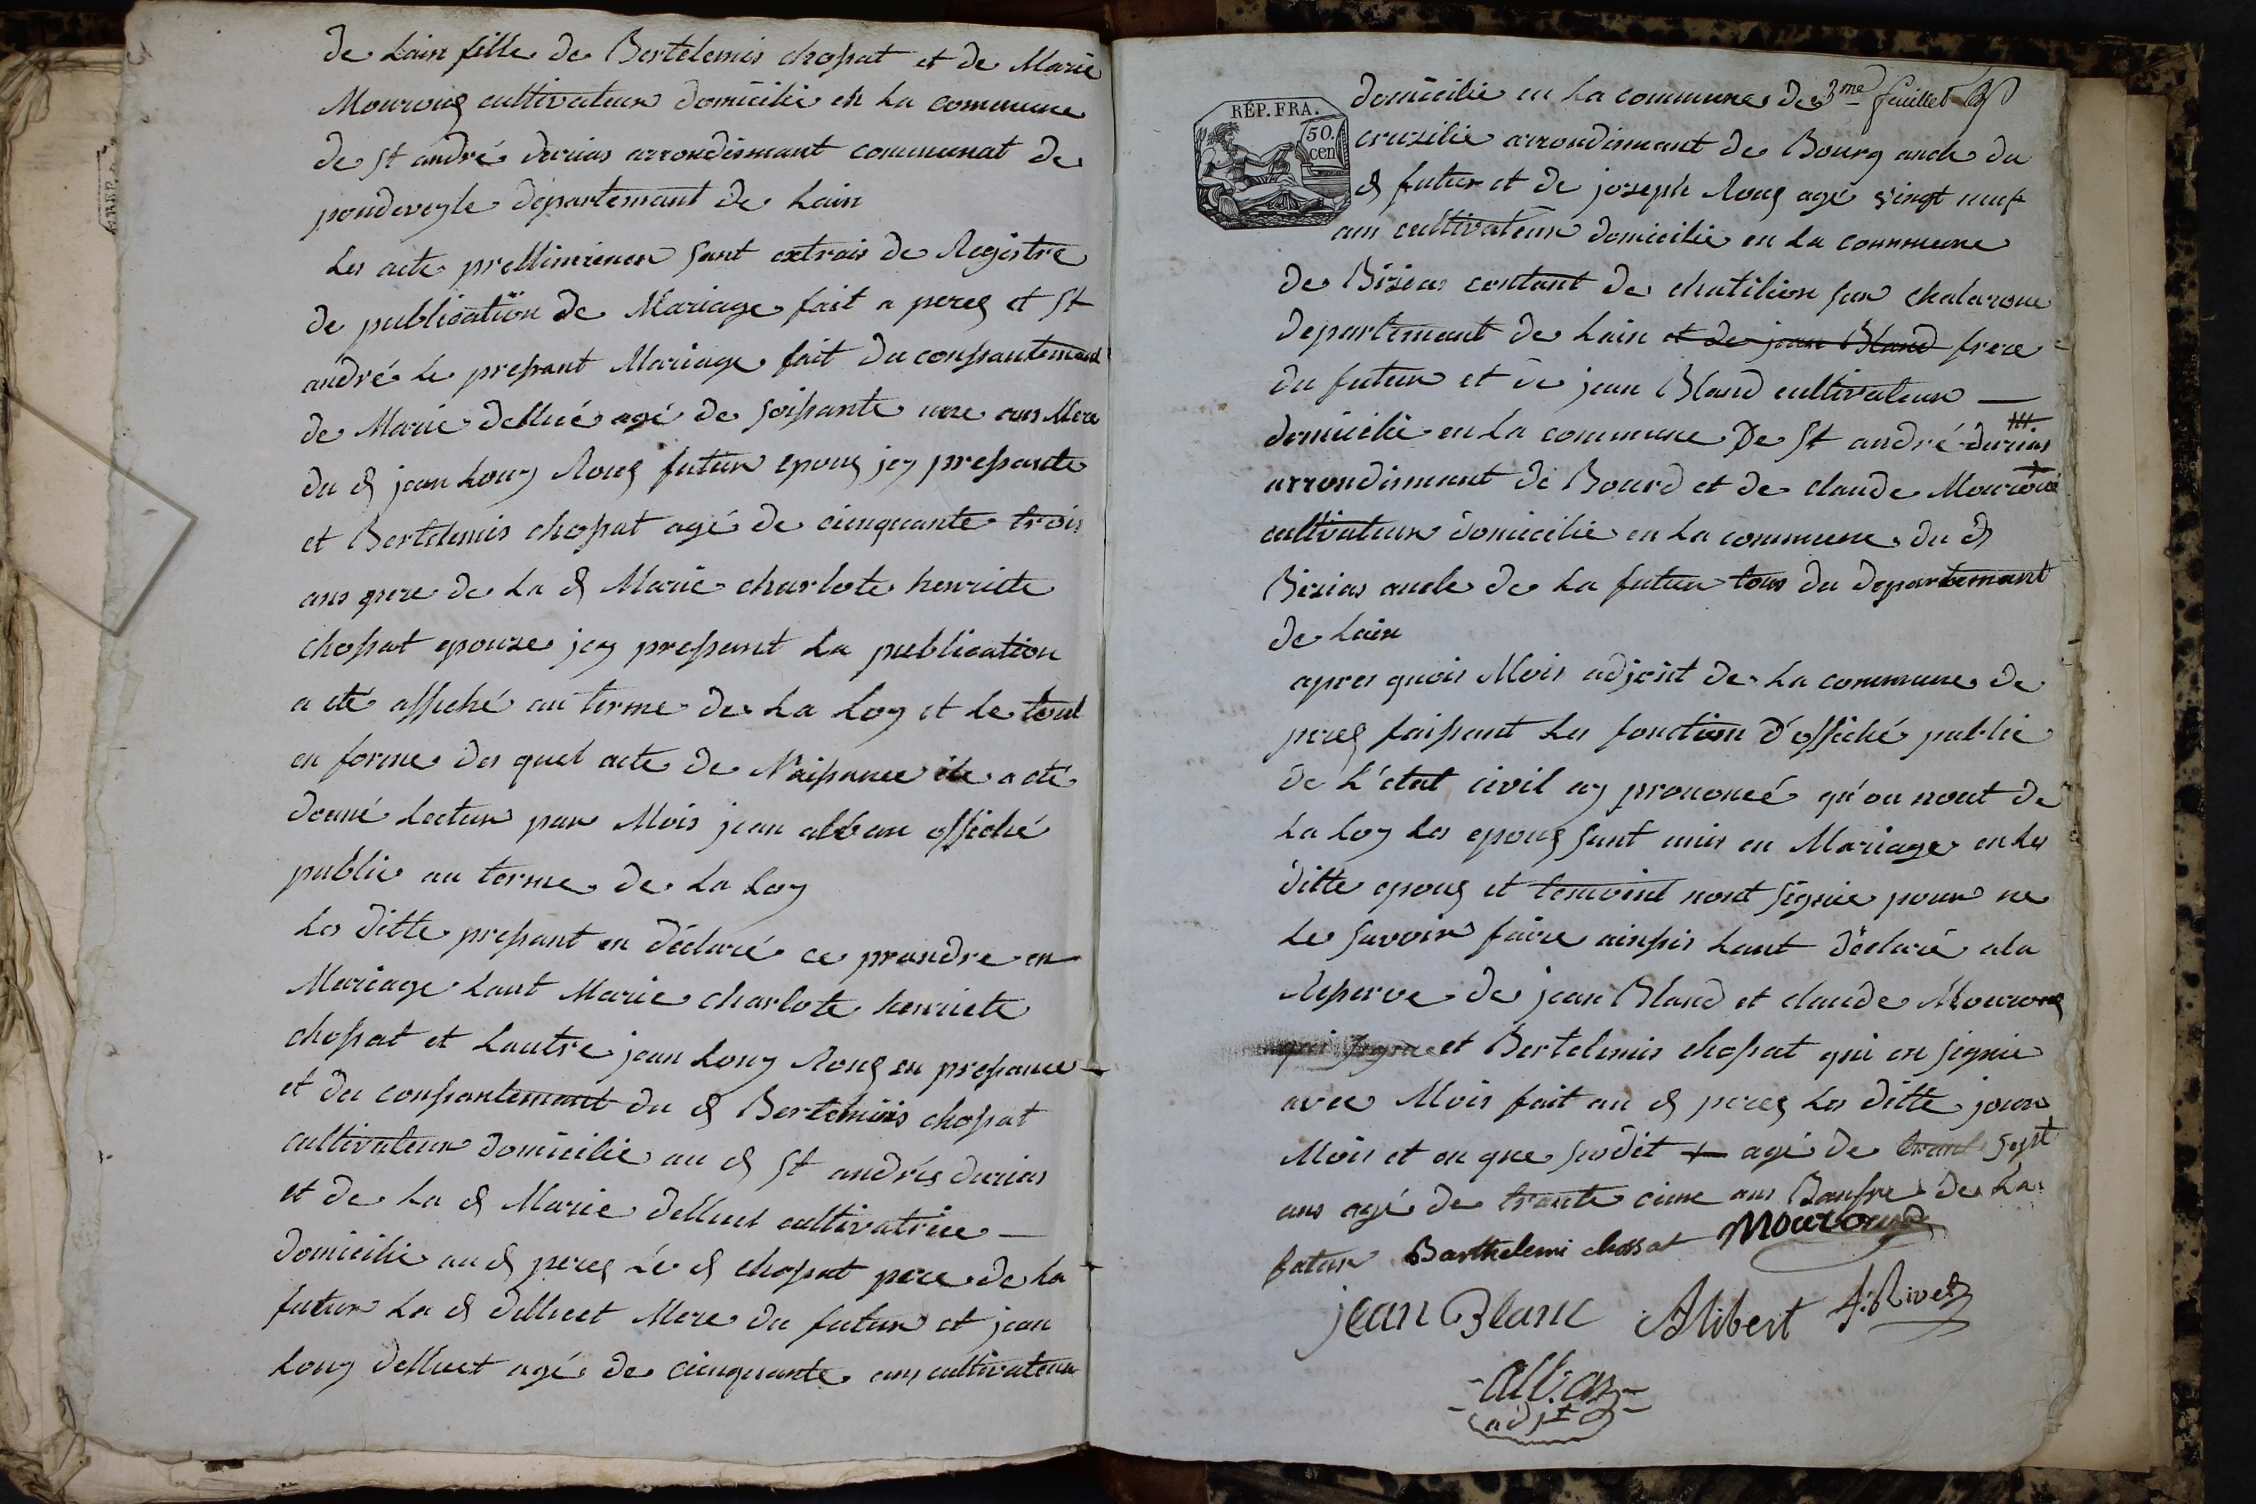 de Lain fille de Bertelemis chossat et de Marie
Mouroug cultivateur domicilié en La commune
de St andré durias arrondismant communat de
pondeveyle département de Lain
Les acte prelliminéner sont extrais de Registre
de publication de Mariage fait a perez et St
andré Le pressant Mariage fait du conssantemand
de Marie delluié agé de soissante une ans Mere
du d jean Louy Roug futur epoug jey pressante
et Bertelemis chossat agé de cinnquante trois
ans pere de La d Marie charlote henriete
chossat epouze jey pressant La publication
a été affiché au terme de La Loy et Le tout
en forme des quel acte de Naissance ile a été
donné Lectur par Mois jean alban offiché
public au terme de La Loy
Les ditte pressant en déclaré ce prandre en
Mariage Lant Marie Charlote henriete
chossat et Lautre jean Louy Roug en pressance
et du conssantemant du d Bertelmiis chossat
cultivateur domicilié au d St andrés durias
et de La d Marie delluet cultivatrice
domicilié au d perez Le d chossat pere de La
futur La d delluet Mere du futur et jean
Louy delluet agé de cinnquante ans cultivateur
3me feuillet
REP. FRA.
50.
cen
domicilié en La commune de
cruzilie arrondismant de Bourg oncle du
d futur et de jozeph Roug agé vingt neuf
ans cultivateur domicilié en La commune
de Bizias contant de chatilion sur chalarone
departemant de Lain et de jean Bland frere
du futur et de jean Bland cultivateur
domicilié en La commune De St andré durias
arrondismant de Bourd et de claude Mouroug
cultivateur domicilié en La commune du d
Bizias oncle de La futur tous du departemant
de Lain
apres quois Mois adjoint de La commune de
perez faissant Les fonction d'offiché public
de L'état civil ay prononcé qu'ou nout de
La Loy Les epoug sont unis en Mariage en Les
ditte epoug et temoint nont signie pour ne
Le savoir faire ainssis Lant déclaré a la
Resserve de jean Bland et claude Mouroug
et Bertelemis chossat qui on signie
avec Mois fait au d perez Les ditte jour
Mois et en que sudit agé de trante sept
ans agé de trante cinne ans de La
futur Barthelemi chossat Mouroug
jean Blanc Alibert f. Rivet
alban
adjt